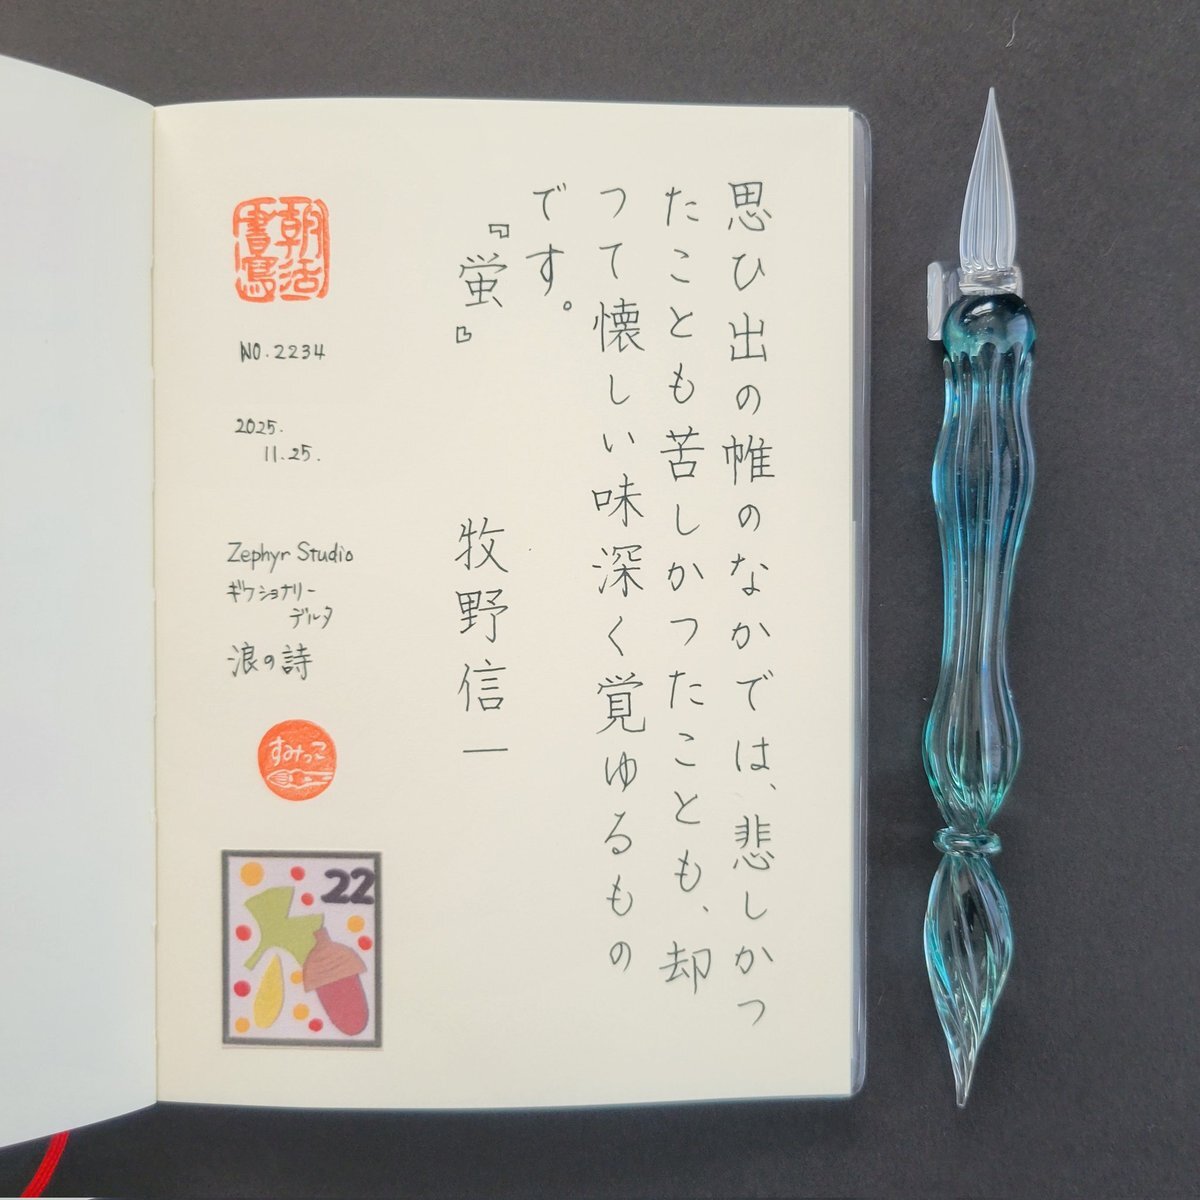 思ひ出の帷のなかでは、悲しかつ
たことも苦しかつたことも、却
つて懐しい味深く覚ゆるもの
です。
『蛍』
牧野信一
朝活
書写
NO.2234
2025.
11.25.
Zephyr Studio
ギケショナリー
デルタ
浪の詩
すみっこ
22